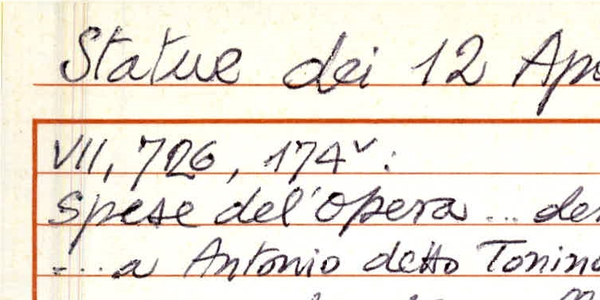 Statue dei 12 Ap
VII, 726, 174v:
Spese del'opera ... de
... a Antonio detto Tonino